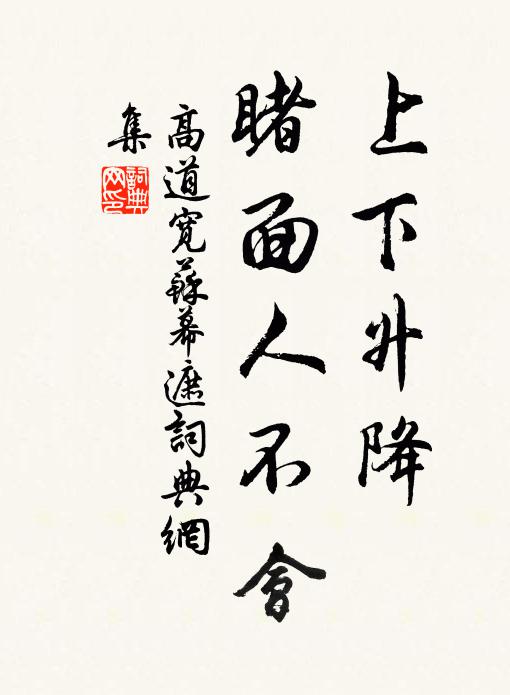 上下升降
睹面人不會
高道寬蘇幕遮詞典網
集
詞典網印